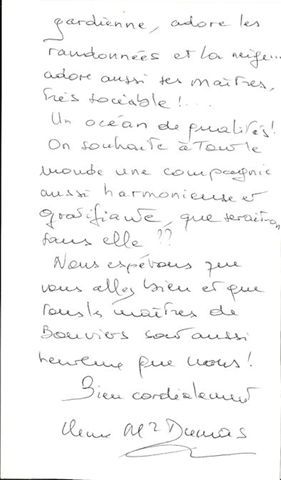 gardienne, adore les
randonnées et la neige...
adore aussi ses maîtres,
très sociable !...
Un océan de qualités !
On souhaite à Tout le
monde une compagnie
aussi harmonieuse et
gratifiante, que serait on
sans elle ??
Nous espérons que
vous allez bien et que
tous les maîtres de
Bouviers sont aussi
heureux que nous !
Bien cordialement
Dumas